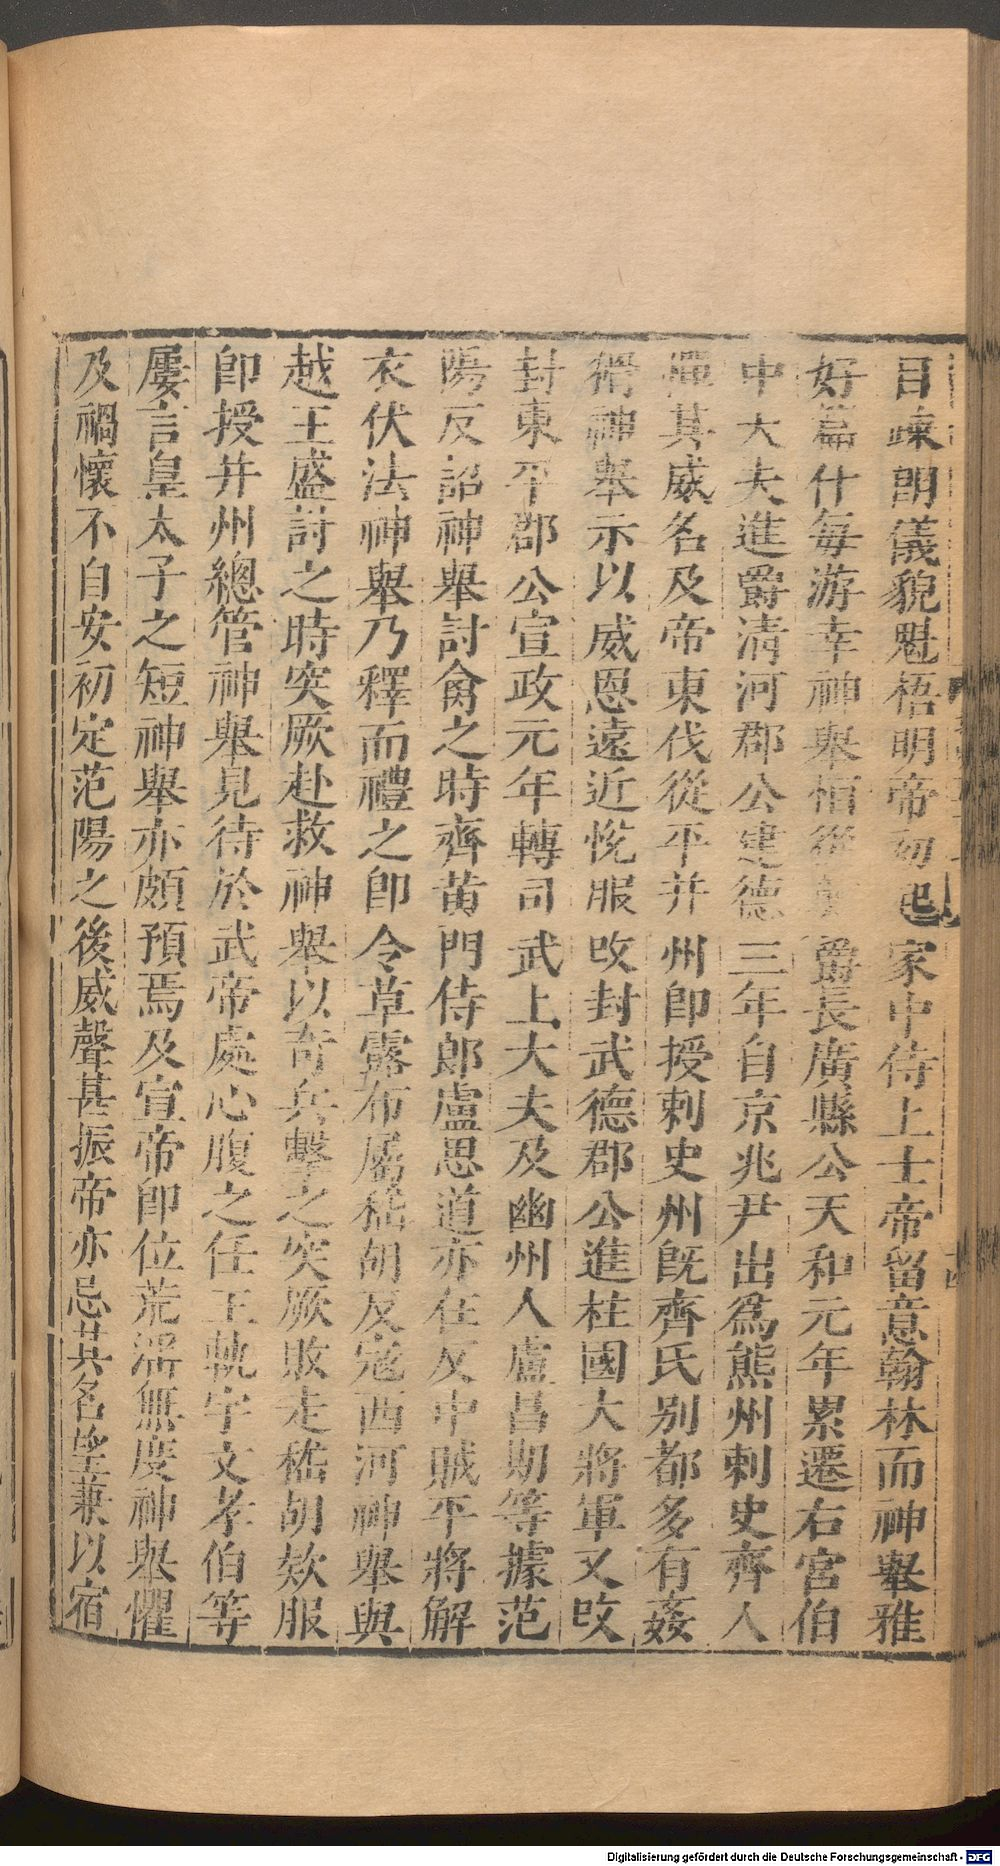 目疎朗儀貌魁梧明帝初起家中侍上士帝留意翰林而神舉雅
好篇什每游幸神舉恒從爵長廣縣公天和元年累遷右宮伯
中大夫進爵清河郡公建德三年自京兆尹出為熊州刺史齊人
憚其威名及帝東伐從平并州即授刺史州既齊氏別都多有姦
猾神舉示以威恩遠近悅服改封武德郡公進柱國大將軍又改
封東平郡公宣政元年轉司武上大夫及幽州人盧昌期等據范
陽反詔神舉討禽之時齊黄門侍郎盧思道亦在反中賊平將解
衣伏法神舉乃釋而禮之即令草露布屬稽胡反寇西河神舉與
越王盛討之時突厥赴救神舉以奇兵擊之突厥敗走稽胡欵服
即授并州總管神舉見待於武帝處心腹之任王軌宇文孝伯等
屢言皇太子之短神舉亦頗預焉及宣帝即位荒淫無度神舉懼
及禍懷不自安初定范陽之後威聲甚振帝亦忌其名望兼以宿
Digitalisierung gefördert durch die Deutsche Forschungsgemeinschaft - DFG